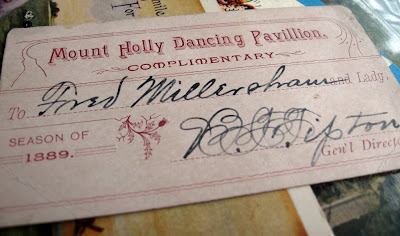 Mount Holly Dancing Pavillion.
COMPLIMENTARY
To Fred Millersham and Lady,
SEASON OF
1889.
Tipton
Gen'l Directo